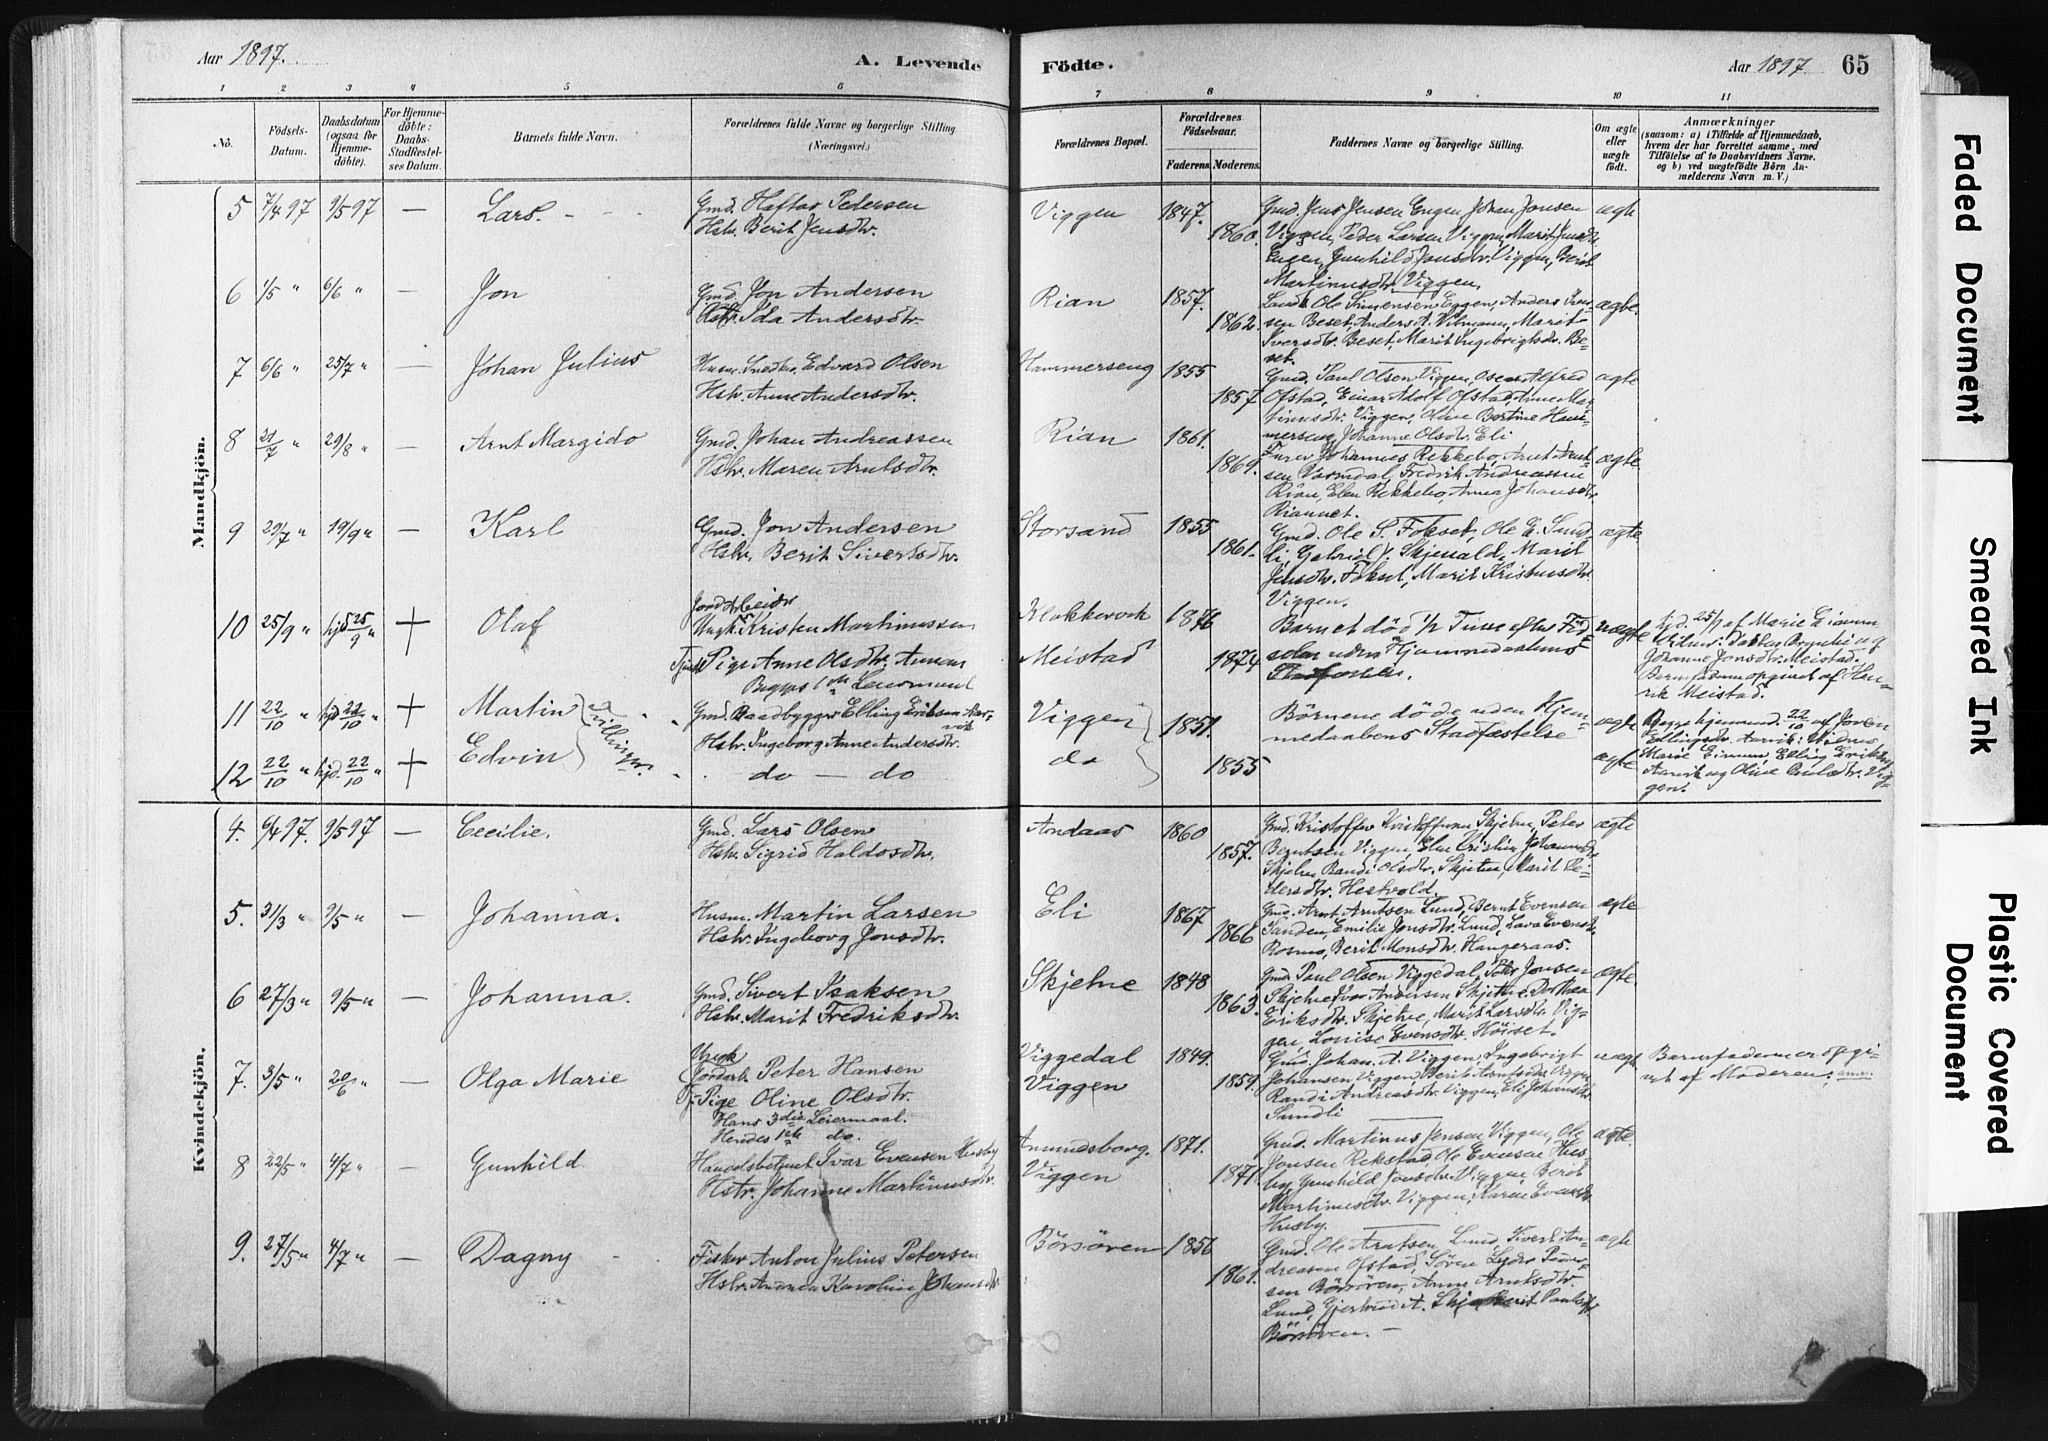 Aar 1897.
A. Levende
Födte.
Aar 1897
65
1 2 3 4 5 6
7 8 9 10 11
No.
Födsels-
Datum.
Daabsdatum
(ogsaa for
Hjemme-
döbte).
For Hjemme-
döbte:
Daabs-
Stadfæstel-
ses Datum.
Barnets fulde Navn.
Forældrenes fulde Navne og borgerlige Stilling
(Næringsvei.)
Forældrenes Bopæl.
Forældrenes
Födselsaar.
Faderens. Moderens.
Faddernes Navne og borgerlige Stilling.
Om ægte
eller
uægte
födt.
Anmærkninger
(saasom: a) i Tilfælde af Hjemmedaab,
hvem der har forrettet samme, med
Tilföielse af to Daabsvidners Navne.
og b) ved uægtefödte Börn An-
melderens Navn m. V.)
Mandkjön.
5 7/4 97 9/5 97 — Lars. Gmd. Haftor Pedersen
Hstr. Berit Jensdtr.
Viggen 1847. 1860.
Gmd. Jens Jensen Engen Johan Jonsen
Viggen, Peder Larsen Viggen, Marit Jensdtr.
Engen, Gunhild Jonsdtr. Viggen, Berit
Martinusdtr. Viggen.
ægte
6 1/5 " 6/6 " — Jon Gmd. Jon Andersen
Hstr. Ida Andersdtr.
Rian 1857. 1862.
Ole Simensen Eggen, Anders
sen Beset, Anders A. Marit
Iversdtr. Beset, Marit Ingebrigtsdr. Be-
set.
ægte.
7 6/6 " 25/7 " — Johan Julius Husm. Edvard Olsen
Hstr. Anne Andersdtr.
Hammerseng 1855 1857.
Gmd. Paul Olsen Viggen, Alfred
Ofstad, Einar Adolf Ofstad, Anne Mar-
tinusdtr. Viggen, Oline Bertine Ham-
merseng, Johanne Olsdtr. Eli
ægte
8 21/7 " 29/8 " — Arnt Margido Gmd. Johan Andreassen
Hstr. Maren Arntsdtr.
Rian 1861. 1869.
Johannes Rekkebo, Arnt Arnt-
sen Fredrik Andreassen
Rian, Elen Rekkebo, Anna Johansdtr.
ægte
9 29/7 " 19/9 " — Karl Gmd. Jon Andersen
Hstr. Berit Sivertsdtr.
Storsand 1855 1861.
Gmd. Ole S. Fokset, Ole E. Sund-
li, Gabriel J. Skjenald, Marit
Jensdtr. Fokset, Marit
Viggen.
ægte
10 25/9 " hjd 25/9 " + Olaf
Jordarbeider
Ungk. Kristen Martinussen
Pige Anne Olsdtr.
Begges 1ste Leiermaal
Meistad 1876 1874
Barnet död 1/2 Time efter Föd-
selen uden Hjemmedaabens
uægte
hjd. 25/9 af Marie
Johanne Jonsdtr. Meistad.
Barnefaderen opgivet af Hen-
rik Meistad.
11 22/10 " hjd 22/10 " + Martin
Tvillinger.
Gmd. Baadbygger Elling Eriksen
Hstr. Ingeborg Anne Andersdtr.
Viggen 1851.
Börnene döde uden Hjem-
medaabens Stadfæstelse
ægte
Begge hjemmed. 22/10 af
12 22/10 " hjd. 22/10 " + Edvin do — do
do 1855
ægte
Elling Eriksen
og Oline Paulsdtr. Vig-
gen.
Kvindekjön.
4. 6/4 97. 9/5 97 — Cecilie. Gmd. Lars Olsen
Hstr. Sigrid Haldosdtr.
Andaas 1860 1857.
Gmd. Kristoffer Kristoffersen Skjetne, Peter
Berntsen Viggen, Elen Johannesdtr.
Skjetne Randi Olsdtr. Skjetne, Marit Pe-
dersdtr. Hestvold.
ægte
5. 31/3 " 9/5 " — Johanna. Husm. Martin Larsen
Hstr. Ingeborg Jonsdtr.
Eli 1867 1866
Gmd. Arnt Arntsen Lund, Bernt Evensen
Sanden, Emilie Jonsdtr. Lund, Evensdtr.
Berit Monsdtr. Haugeraas.
ægte
6 27/3 " 9/5 " — Johanna. Gmd. Sivert Isaksen
Hstr. Marit Fredriksdtr.
Skjetne 1848 1863.
Gmd. Paul Olsen Viggedal, Peter Jonsen
Skjetne Ivar Andersen Skjetne, Dorthea
Eriksdtr. Skjetne, Marit Larsdtr. Vig-
gen, Louise Evensdtr. Höiset.
ægte.
7. 3/5 " 20/6 " — Olga Marie
Ungk.
Jordarb. Peter Hansen
Pige Oline Olsdtr.
Hans 3die Leiermaal.
Hendes 1ste do.
Viggedal
Viggen
1849. 1859.
Gmd. Johan A. Viggen, Ingebrigt
Johansen Viggen, Berit Arntsdtr. Viggen
Randi Andreasdtr. Viggen, Eli Johansdtr.
Sundli
uægte
Barnefaderen er opgi-
vet af Moderen.
8 22/5 " 4/7 " — Gunhild Handelsbetjent Ivar Evensen Husby
Hstr. Johanne Martinusdtr.
Amundsborg.
Viggen
1871. 1871.
Gmd. Martinus Jensen Viggen, Ole
Jonsen Rekstad, Ole Evensen Hus-
by, Gunhild Jonsdtr. Viggen, Berit
Martinusdtr. Viggen, Karen Evensdtr.
Husby.
ægte.
9. 27/5 " 4/7 " — Dagny Fisker Anton Julius Petersen
Hstr. Amanda Karoline Johansdtr.
Börsören 1856 1861.
Gmd. Ole Arntsen Lund, Sivert An-
dreasen Ofstad, Sören
sen Börsören, Anne Arntsdtr.
Lund, Gjertrud A. Berit Paulsdtr.
Börsören. —
ægte
Faded Document
Smeared Ink
Plastic Covered
Document